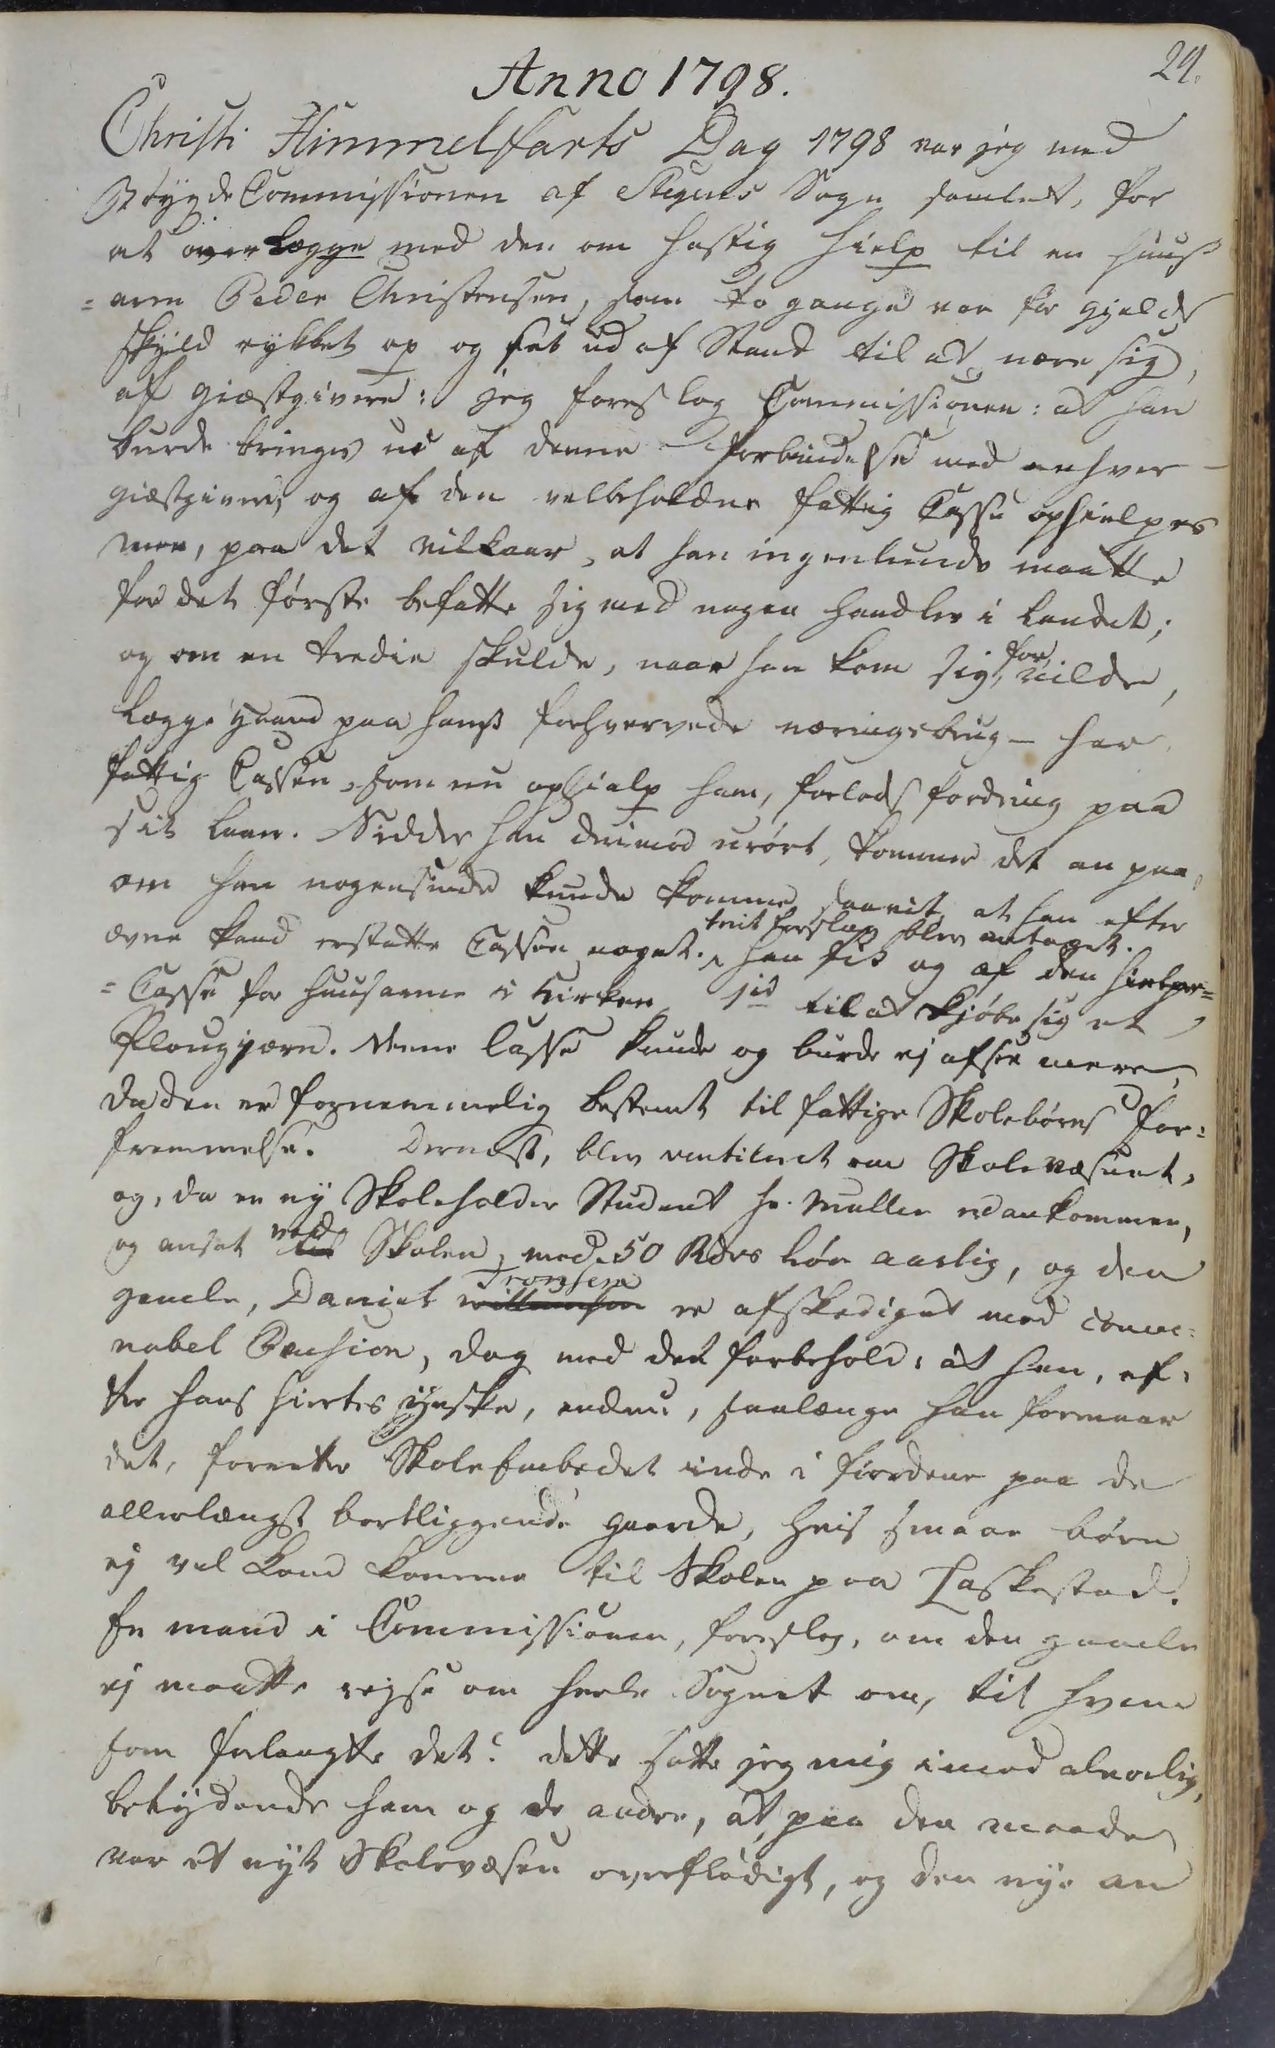 29.
Anno 1798.
Christi Himmelfarts Dag 1798 var jeg med
Bøygde Commissionen af Stegens Sogn samlet, for
at overlægge med den om hastig Hielp til en Huus-
=arm Peder Christensen, som to gange var for gjelds
skyld rykket op og sat ud af Stand til at nære sig,
af giæstgivere: jeg foreslog Commissionen: at han
burde bringes ud af denne forbindelse med enhver
giæstgiver, og af den velbeholdne fattig Casse ophielpes
mer, paa det vilkaar, at han ingenlunde maatte
for det første befatte sig med nogen handler i Landet;
og om en tredie skulde, naar han kom sig for vilde,
lægge Haand paa hans forhvervede næringsbrug - har
fattig Cassen, som nu ophialp ham, forlods fordring paa
sit laan. Sidder han derimod urørt, kommer det an paa,
om han nogensinde kunde komme saavit, at han efter
ævne kand erstatte Cassen noget. mit forslag blev antaget. han fik og af den hielpe=
=Casse for huusarme i Kirken 1 rd til at kjøbe sig et
Plougjærn. Denne Casse kunde og burde ej afsee mere,
da den er fornemmelig bestemt til fattige Skolebørns for=
fremmelse. Dernæst, blev ventileret om Skolevæsenet,
og, da en ny Skoleholder Student Hr. Muller er ankommen,
og ansat ved Skolen, med 50 Rdrs løn aarlig, og den
gamle, Daniel Tronsen er afskediget med conve=
nabel Pension, dog med det forbehold: at han, ef=
ter hans hiertes ynske, endnu, saalænge han formaar
det, forretter Skole Embedet inde i fiordene paa de
allerlængst bortliggende gaarde, hvis smaae børn
ej vel kand komme til Skolen paa Laskestad.
En mand i Commissionen, foreslog, om den gamle
ej maatte rejse om heele Sognet om, til hvem
som forlangte det? dette satte jeg mig imod alvorlig,
betydende ham og de andre, at paa den maade
var et nyt Skolevæsen overflødigt, og den nye an